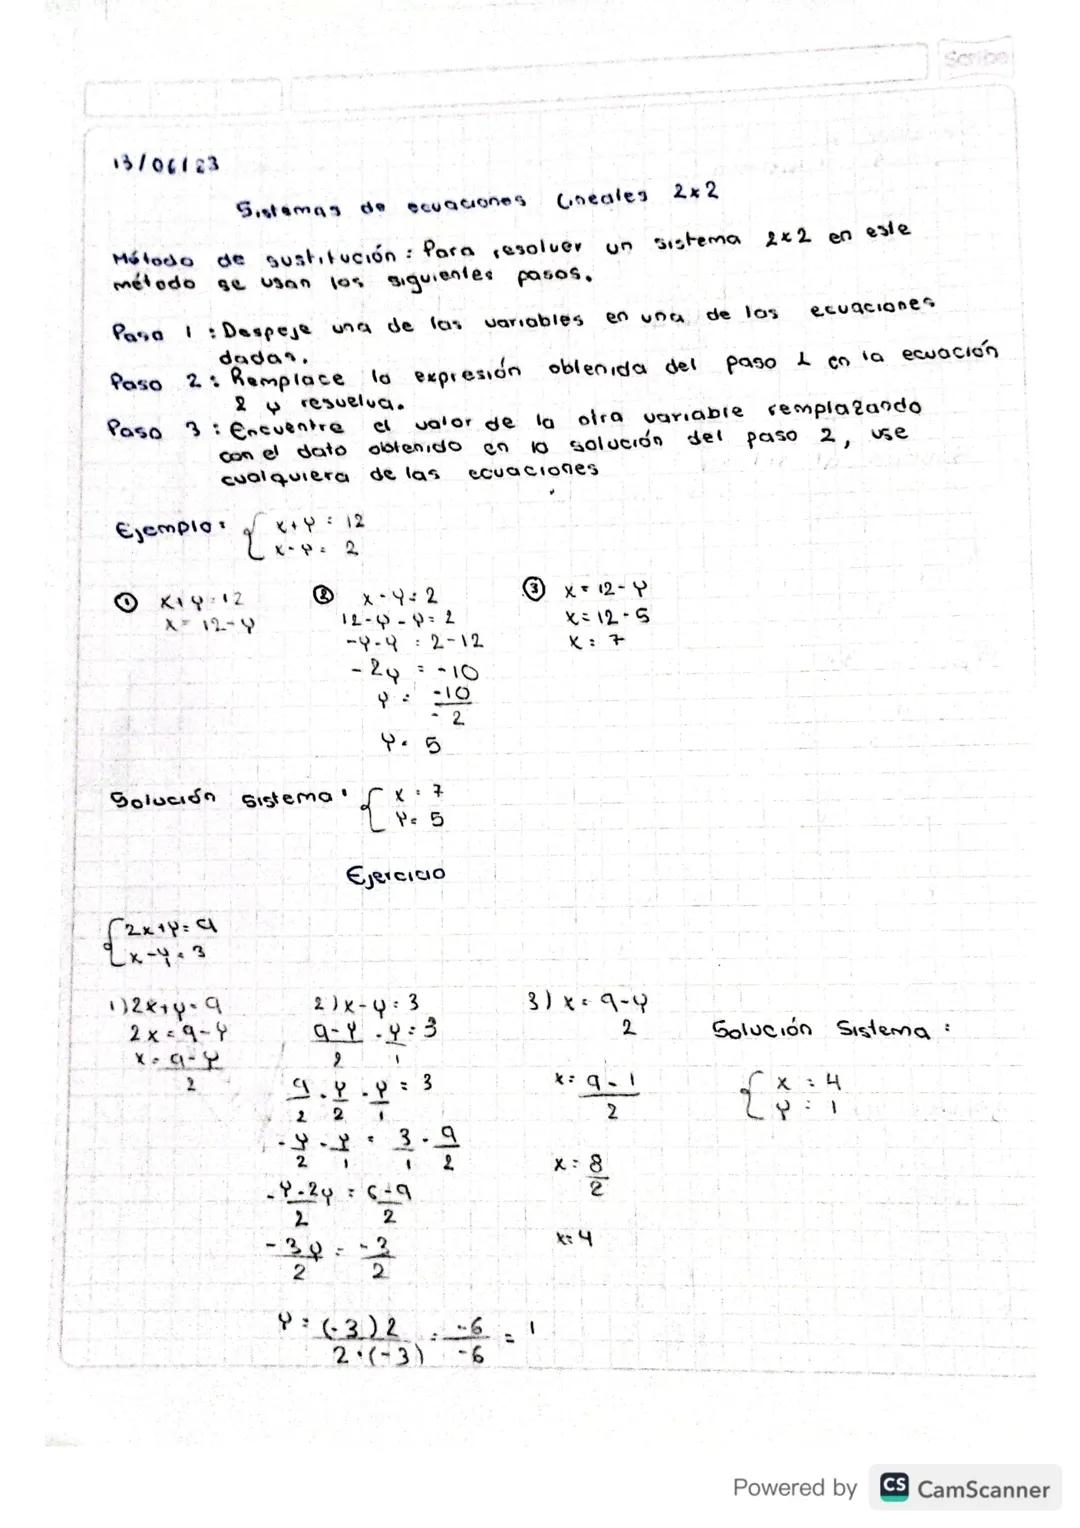 Scribe
13/06/23
Sistemas de ecuaciones Lineales 2x2
Método de sustitución: Para resolver un sistema 2x2 en este
método se usan los siguientes pasos.
Paso 1: Despeje una de las variables en una de las ecuaciones
dadas.
Paso 2: Remplace la expresión obtenida del paso 1 en la ecuación
2 y resuelva.
Paso 3: Encuentre el valor de la otra variable remplazando
con el dato obtenido en la solución del paso 2, use
cualquiera de las ecuaciones
Ejemplo: { x+y = 12
x-y = 2
① x+y=12
x=12-y
② x-y=2
12-y-y=2
-y-y=2-12
-2y=-10
y=-10/-2
y=5
③ x=12-y
x=12-5
x=7
Solución sistema: { x=7
y=5
Ejercicio
{ 2x+y=9
x-y=3
1) 2x+y=9
2x=9-y
x=9-y/2
2) x-y=3
9-y/2 - y/1 = 3
9/2 - y/2 - y/1 = 3
-y/2 - y/1 = 3/1 - 9/2
-y-2y/2 = 6-9/2
-3y/2 = -3/2
y = (-3)2/2·(-3) = -6/-6 = 1
3) x=9-y/2
x=9-1/2
x=8/2
x=4
Solución Sistema:
{ x=4
y=1
Powered by CS CamScanner